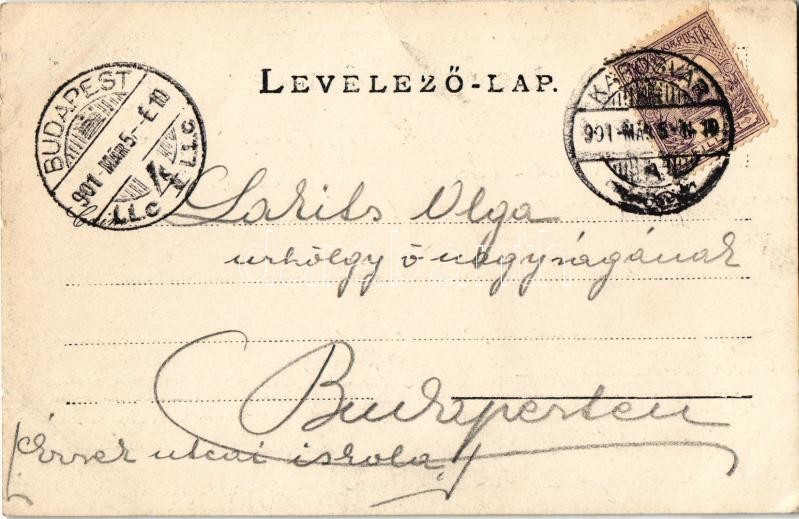 LEVELEZŐ-LAP.
BUDAPEST
901-MÁR 5-E 10
LLC
LLC
KAPOSVÁR
901-MÁR 5-N 10
Olga
urhölgy ő nagyságának
Budapesten
utcai iskola